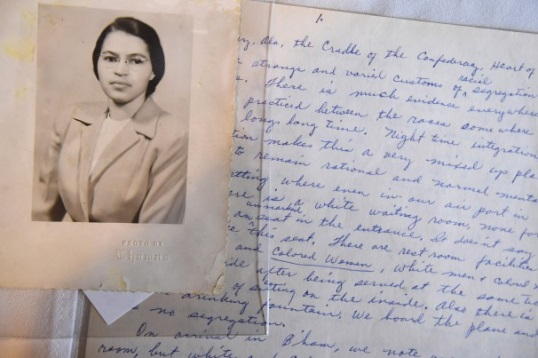 1.
Ala, the Cradle of the Confederacy, Heart of
strange and varied customs of racial segregation
There is much evidence everywhere
practiced between the races somewhere
long long time. Night time integration
makes this a very mixed up pla
to remain rational and normal menta
where even in our air port in
is a white waiting room, none for
unmarked, seat in the entrance. It doesn't say
this seat. There are rest room facilities
and Colored Women, White men + Colored
after being served at the same
of sitting on the inside. Also there is
drinking fountain. We board the plane and
no segregation.
On arrival in B'ham, we note a
room, but white
PHOTO BY
Thomas